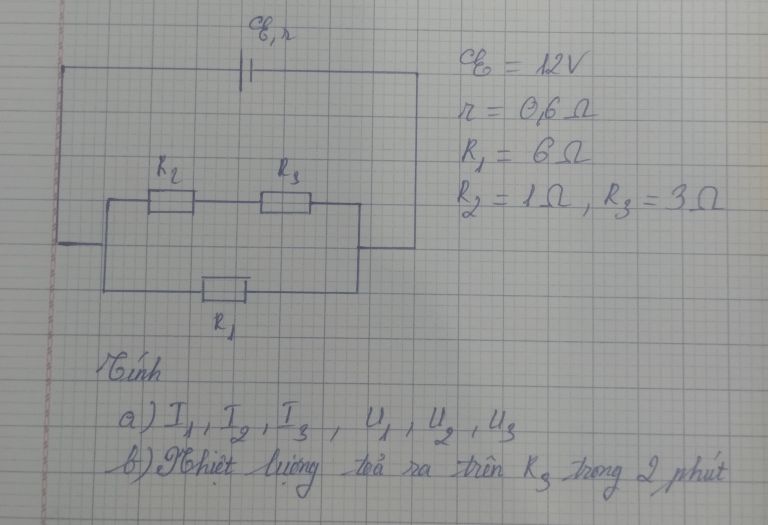 ℰ, r
ℰ = 12V
r = 0,6 Ω
R₁ = 6 Ω
R₂ = 1 Ω, R₃ = 3 Ω
R₂ R₃
R₁
Tính
a) I₁, I₂, I₃, U₁, U₂, U₃
b) Nhiệt lượng toả ra trên R₃ trong 2 phút